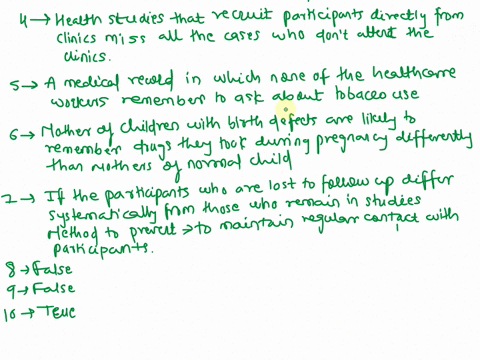 4 → Health studies that recruit participants directly from
clinics miss all the cases who don't attent the
clinics.
5 → A medical record in which none of the healthcare
workers remember to ask about tobacco use
6 → Mother of children with birth defects are likely to
remember drugs they took during pregnancy differently
than mothers of normal child
7 → If the participants who are lost to follow up differ
systematically from those who remain in studies
Method to prevent → to maintain regular contact with
participants.
8 → False
9 → False
10 → True